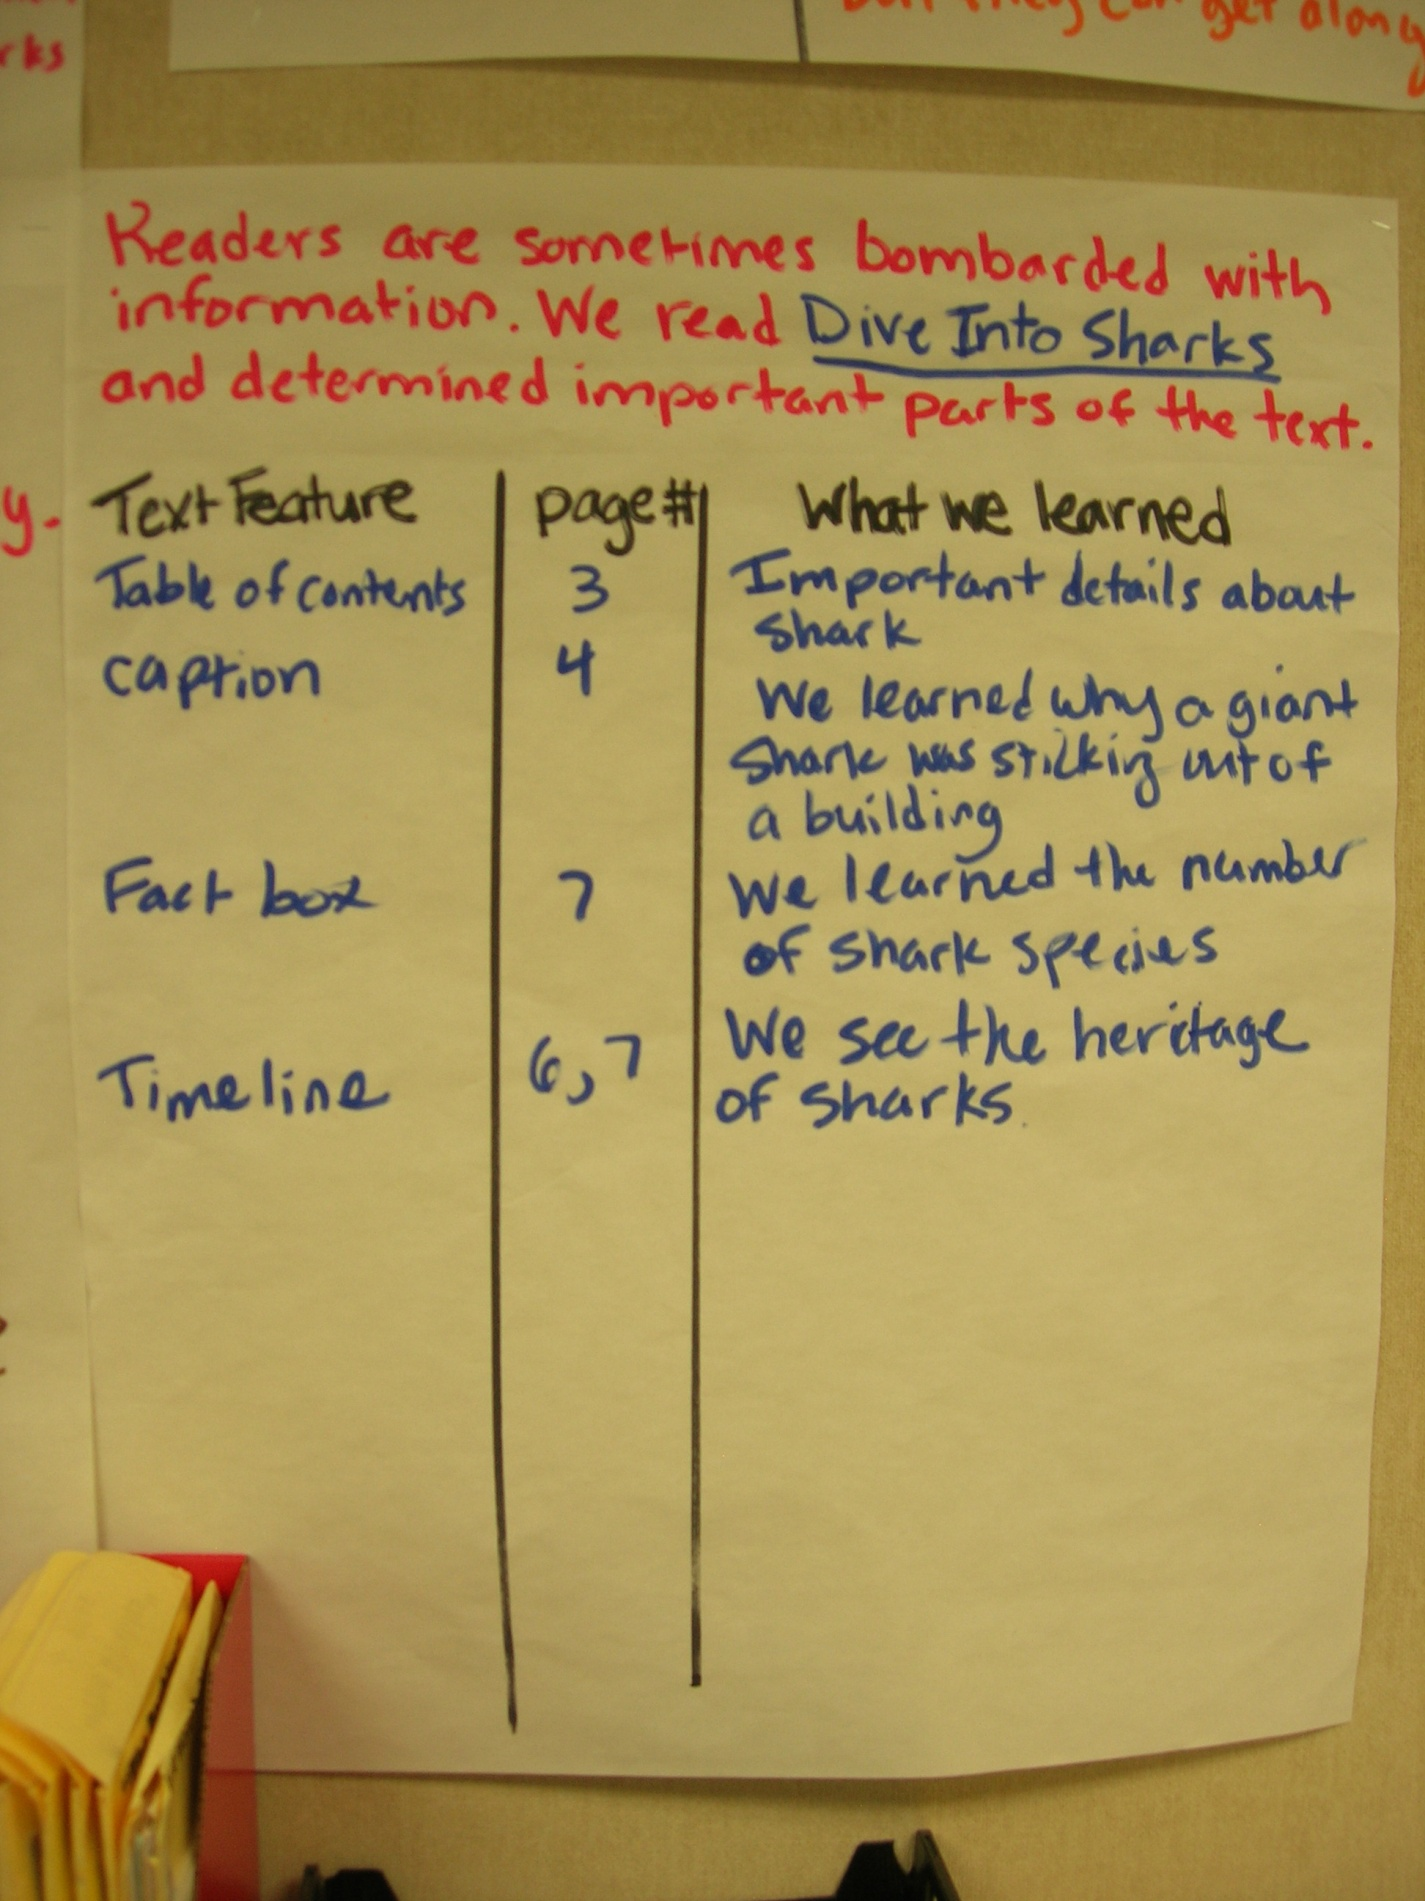 rks
get along
Readers are sometimes bombarded with
information. We read Dive Into Sharks
and determined important parts of the text.
y.
Text Feature page # What we learned
Table of contents 3 Important details about
shark
caption 4 We learned why a giant
shark was sticking out of
a building
Fact box 7 We learned the number
of shark species
Timeline 6,7 We see the heritage
of sharks.